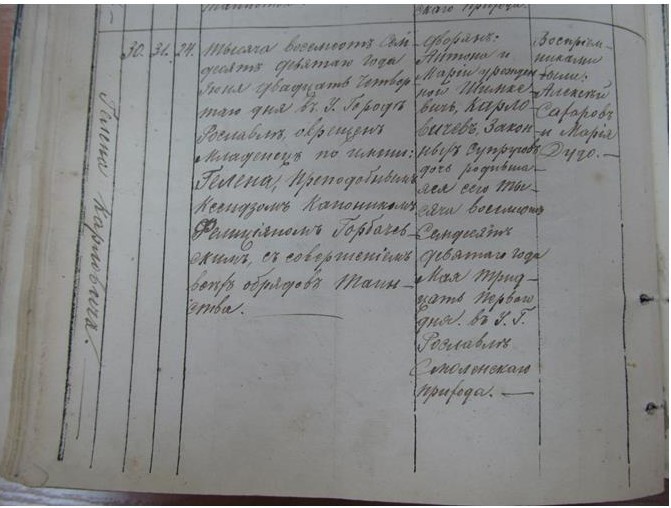 Гелена Карловича.
30. 31. 24.
Тысяча восемсотъ сем
десятъ девятаго года
Іюня двадцать четвер
таго дня въ У. Городѣ
Рославлѣ, окрещенъ
младенецъ по имени:
Гелена, Преподобнымъ
Ксендзомъ Каноникомъ
Фелиціяномъ Горбачев-
скимъ, съ совершеніемъ
всѣхъ обрядовъ Таин-
ства.
Дворянъ:
Антона и
Маріи урожден
ной Шимке-
вичъ, Карло
вичевъ, Закон
ныхъ супруговъ
дочь, родивша-
яся сего ты-
сяча восемсотъ
Семдесятъ
девятаго года
Мая трид-
цать перваго
дня въ У. Г.
Рославлѣ
Смоленскаго
прихода.
Воспріем-
никами
были:
Алексѣй
Сафаровъ
и Марія
Дудо.